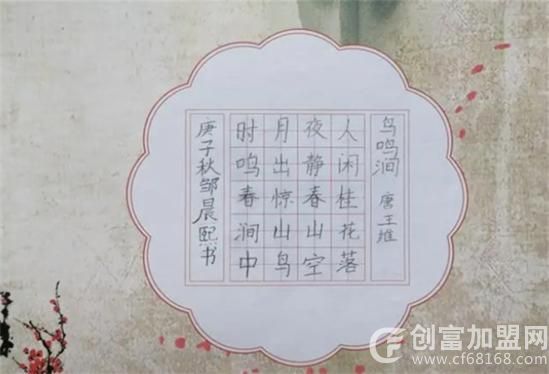 鸟鸣涧 唐王维
人闲桂花落
夜静春山空
月出惊山鸟
时鸣春涧中
庚子秋邹晨熙书
创富加盟网
www.cf68168.com